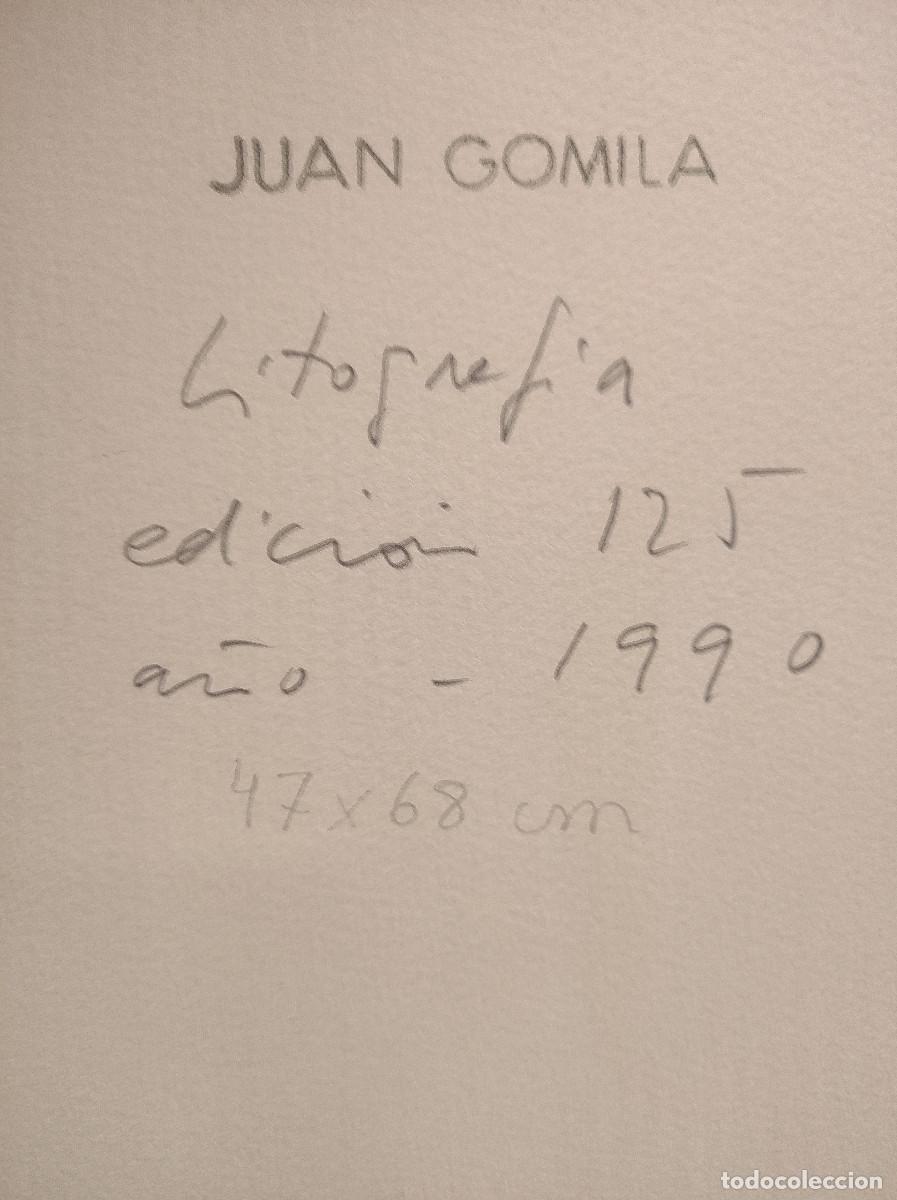 JUAN GOMILA
Litografia
edición 125
año - 1990
47x68 cm
todocoleccion